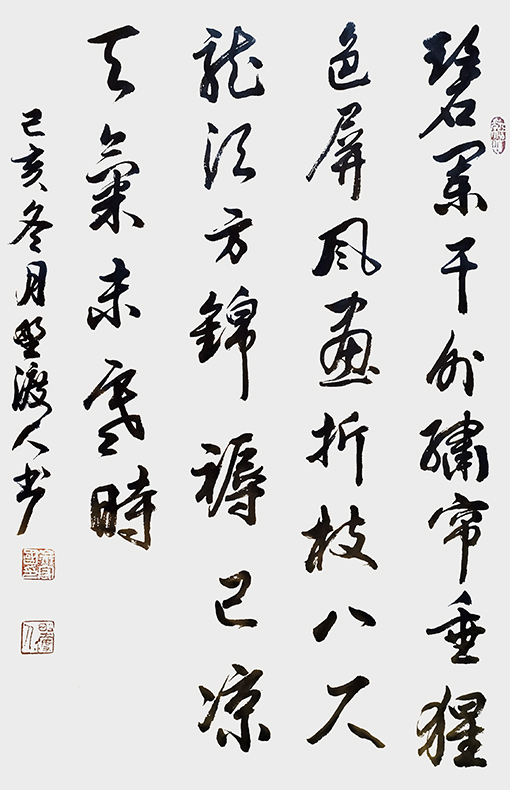 碧闌干外繡帘垂猩
色屏風畫折枝八尺
龍須方錦褥已凉
天氣未寒時
己亥冬月野渡人书